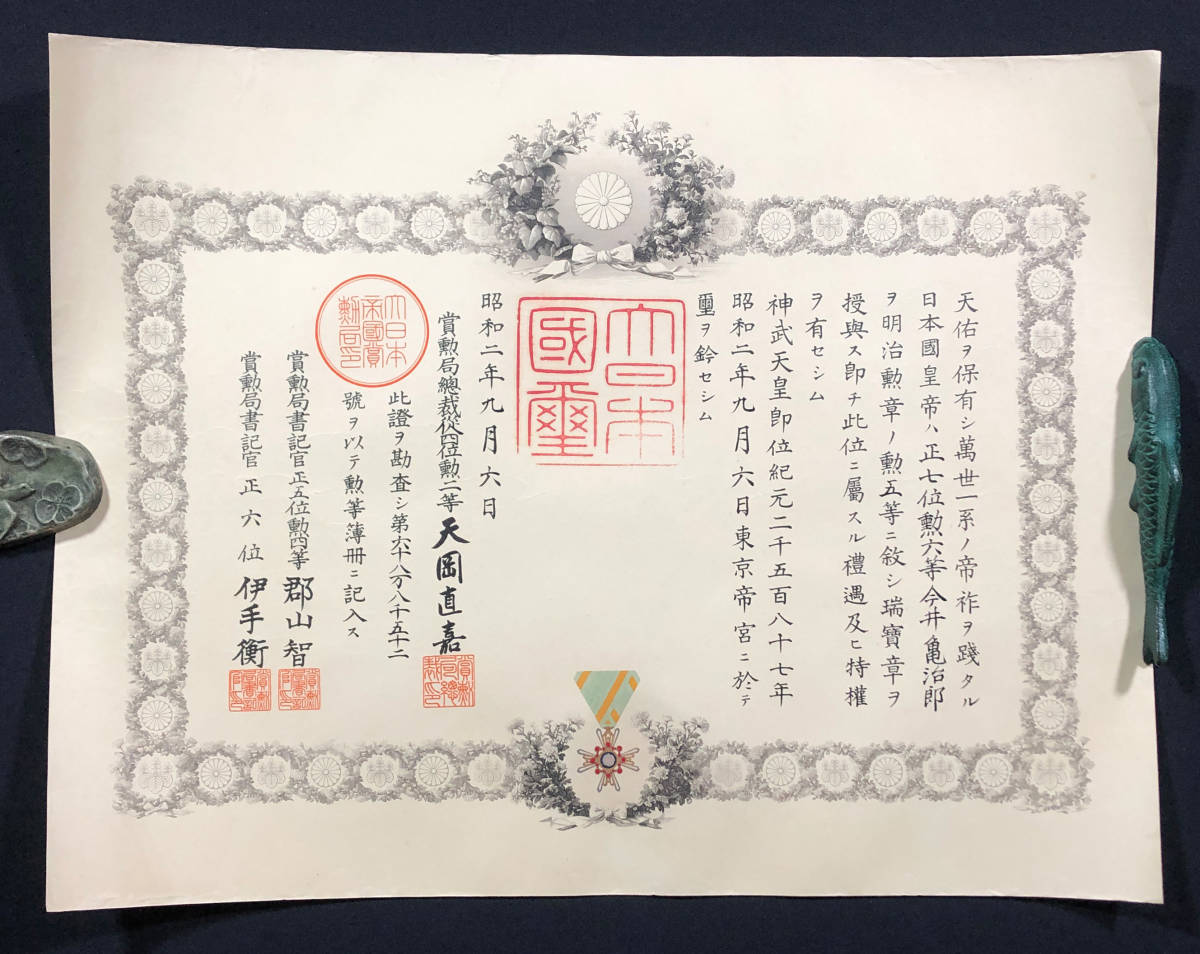 天佑ヲ保有シ萬世一系ノ帝祚ヲ踐タル
日本國皇帝ハ正七位勲六等今井亀治郎
ヲ明治勲章ノ勲五等ニ敘シ瑞寶章ヲ
授與ス即チ此位ニ屬スル禮遇及ヒ特權
ヲ有セシム
神武天皇即位紀元二千五百八十七年
昭和二年九月六日東京帝宮ニ於テ
璽ヲ鈐セシム
大日本
國璽
昭和二年九月六日
賞勲局總裁從四位勲二等天岡直嘉
賞勲
局總
裁印
大日本
帝國賞
勲局印
此證ヲ勘査シ第六十八万八千五十二
號ヲ以テ勲等簿冊ニ記入ス
賞勲局書記官正五位勲四等郡山智
賞勲局書記官正六位伊手衡